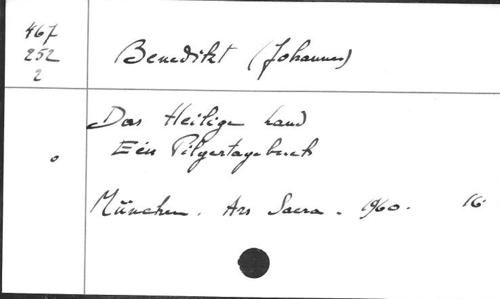 467
252
2
Benedikt (Johannes)
Das Heilige Land
Ein Pilgertagebuch
München. Ars Sacra. 1960. 16°